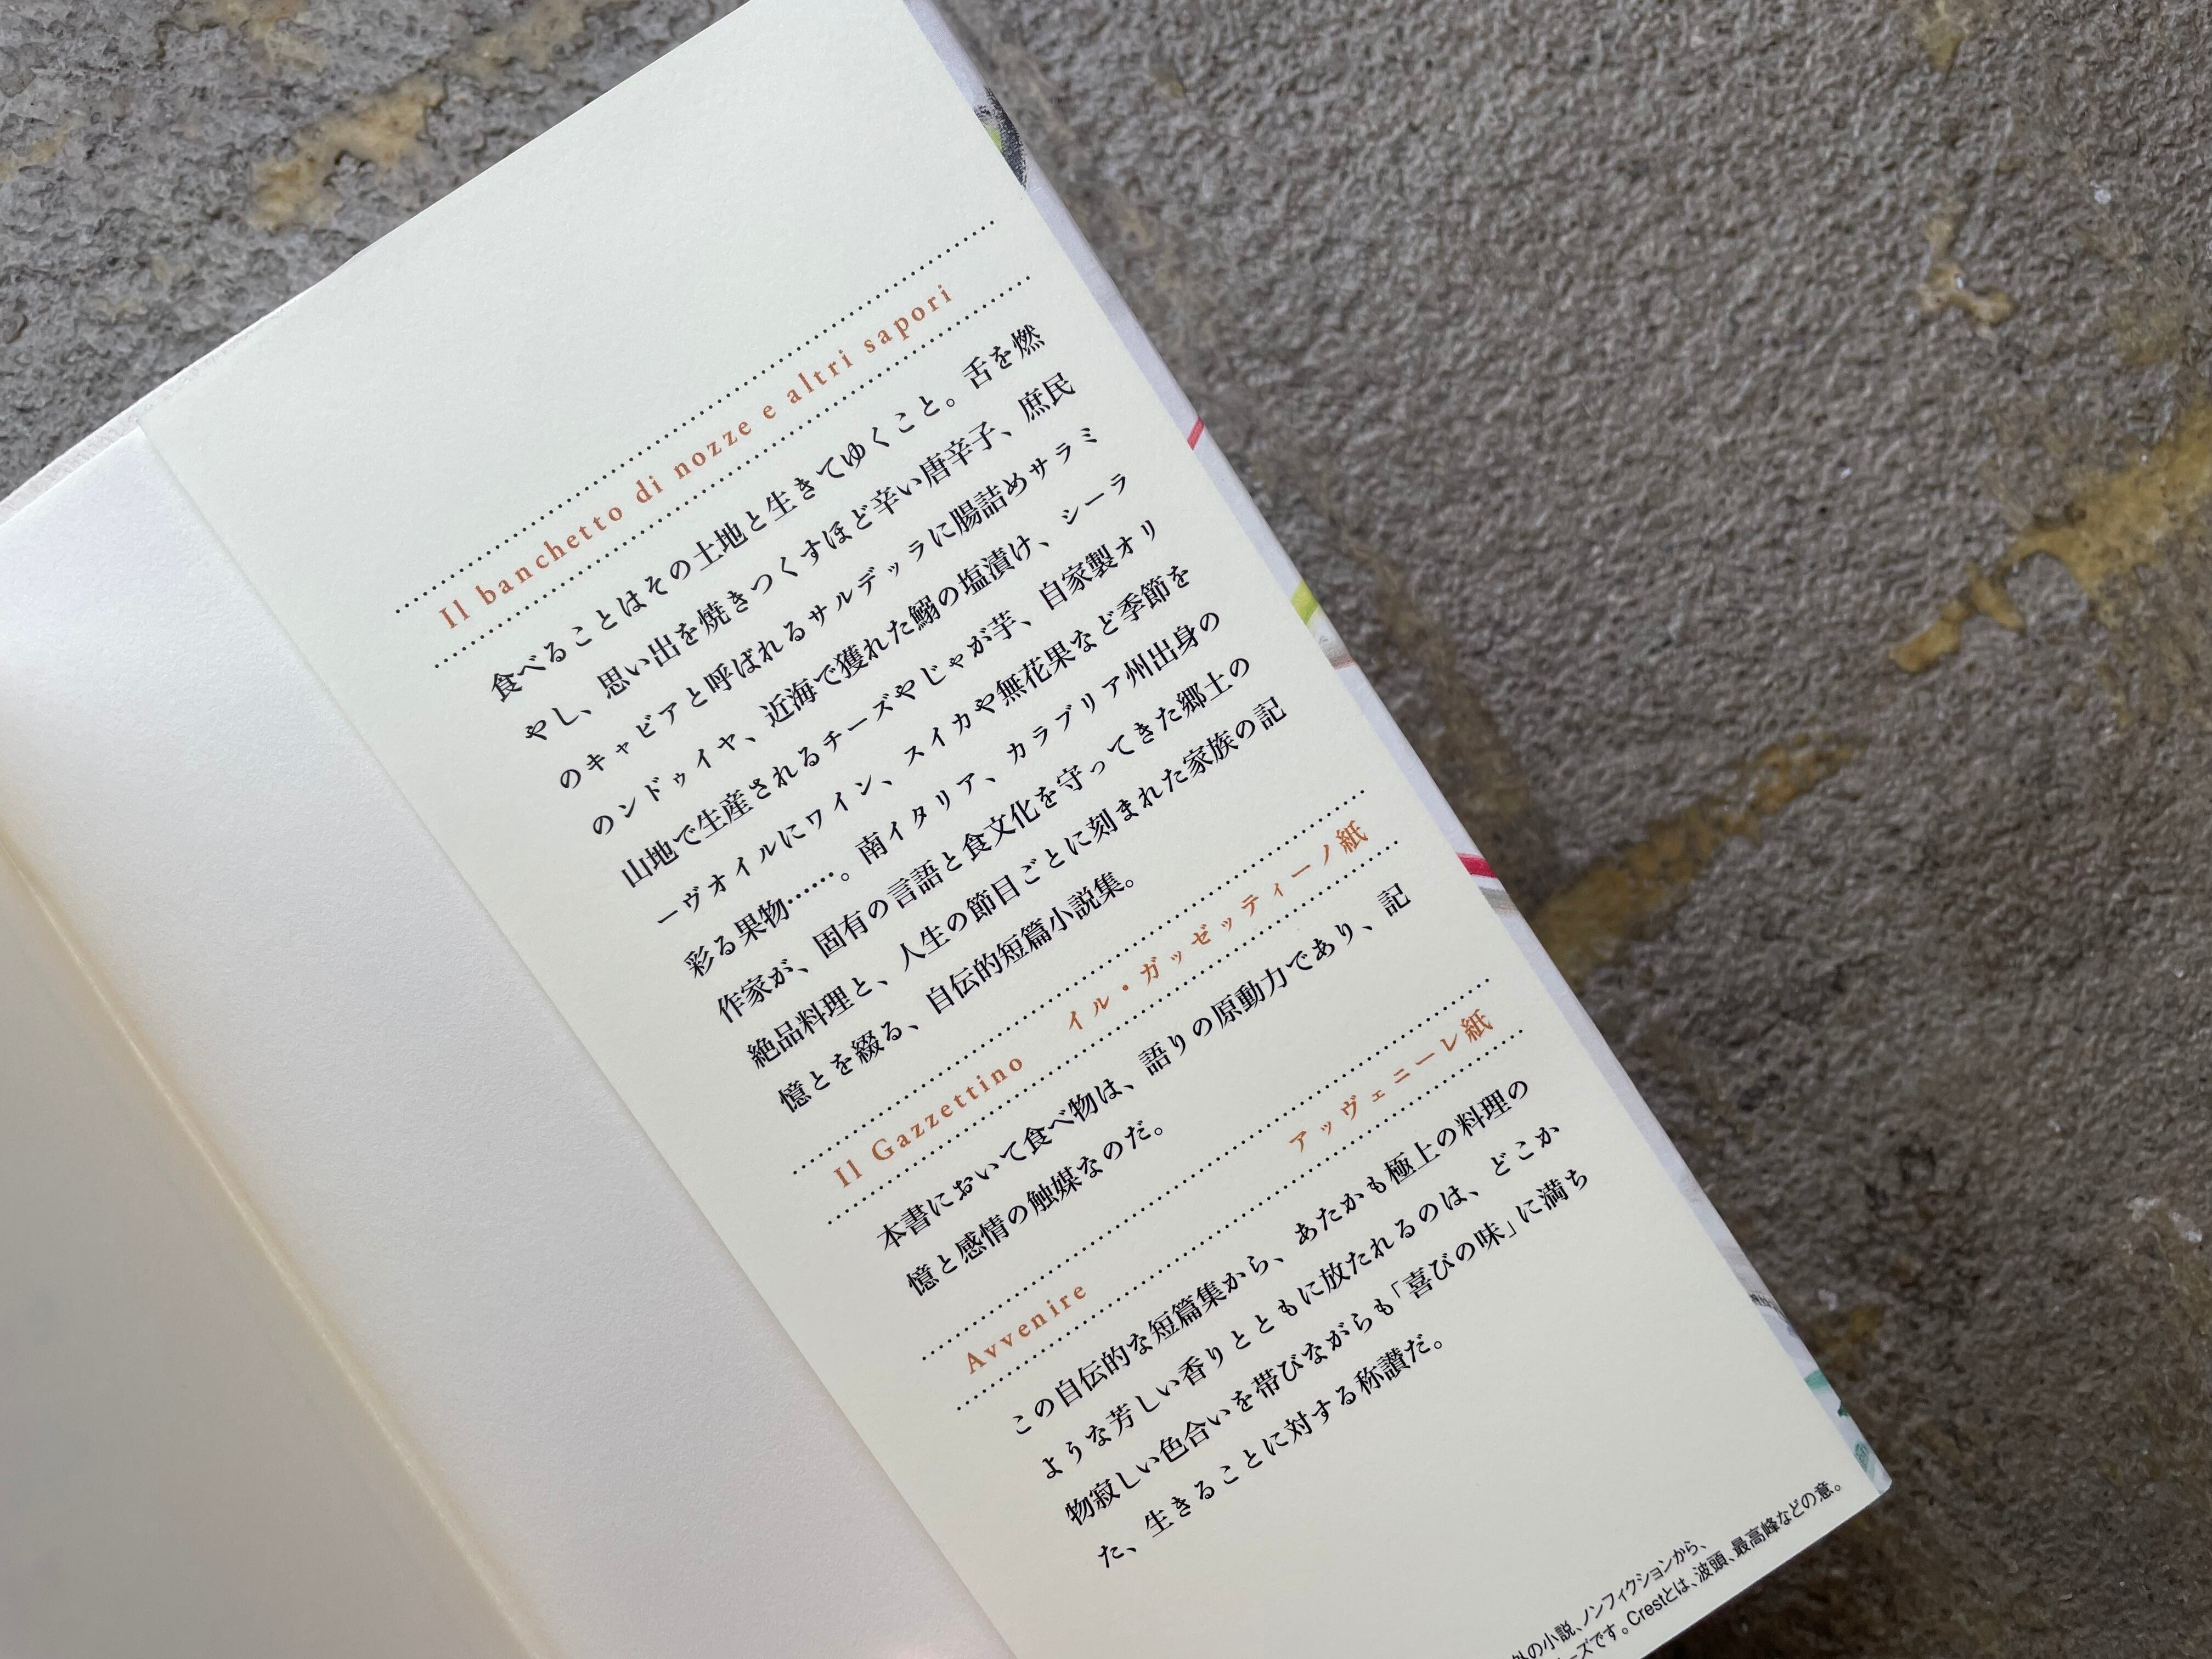 Il banchetto di nozze e altri sapori
食べることはその土地と生きてゆくこと。舌を燃
やし、思い出を焼きつくすほど辛い唐辛子、庶民
のキャビアと呼ばれるサルデッラに腸詰めサラミ
のンドゥイヤ、近海で獲れた鰯の塩漬け、シーラ
山地で生産されるチーズやじゃが芋、自家製オリ
ーヴオイルにワイン、スイカや無花果など季節を
彩る果物……。南イタリア、カラブリア州出身の
作家が、固有の言語と食文化を守ってきた郷土の
絶品料理と、人生の節目ごとに刻まれた家族の記
憶とを綴る、自伝的短篇小説集。
Il Gazzettino イル・ガッゼッティーノ紙
本書において食べ物は、語りの原動力であり、記
憶と感情の触媒なのだ。
Avvenire アッヴェニーレ紙
この自伝的な短篇集から、あたかも極上の料理の
ような芳しい香りとともに放たれるのは、どこか
物寂しい色合いを帯びながらも「喜びの味」に満ち
た、生きることに対する称讃だ。
外の小説、ノンフィクションから、
ーズです。Crestとは、波頭、最高峰などの意。